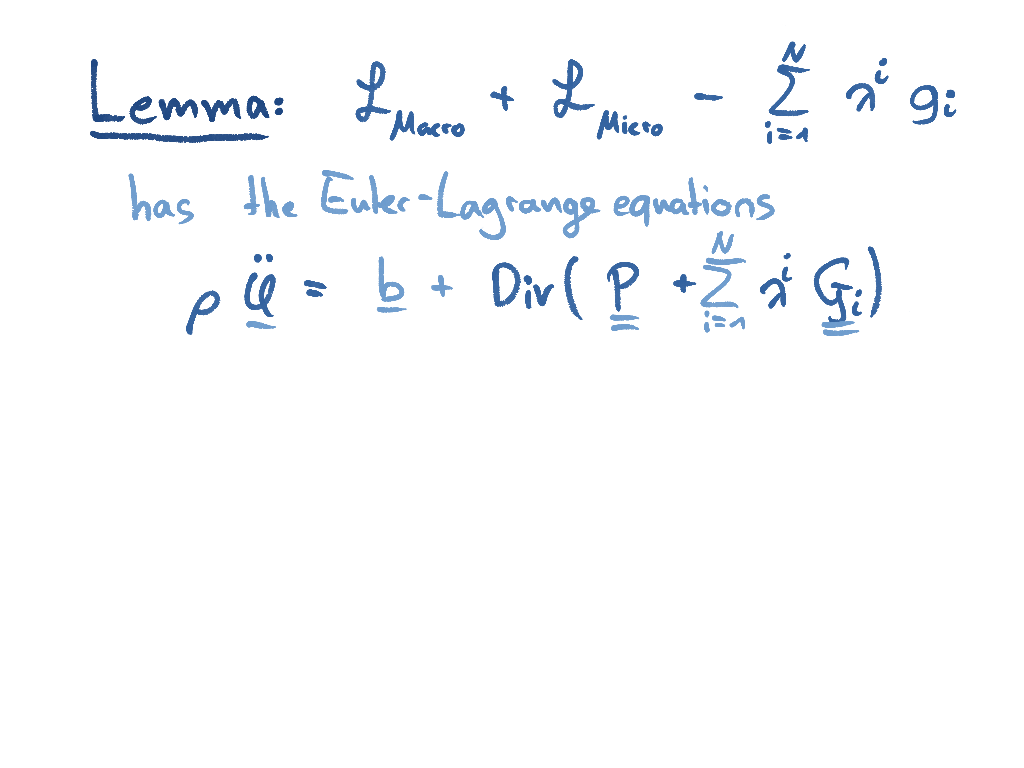 Lemma: ℒ_Macro + ℒ_Micro - ∑_{i=1}^{N} λ^i g_i
has the Euler-Lagrange equations
ρ φ̈ = b + Div( P + ∑_{i=1}^{N} λ^i G_i )